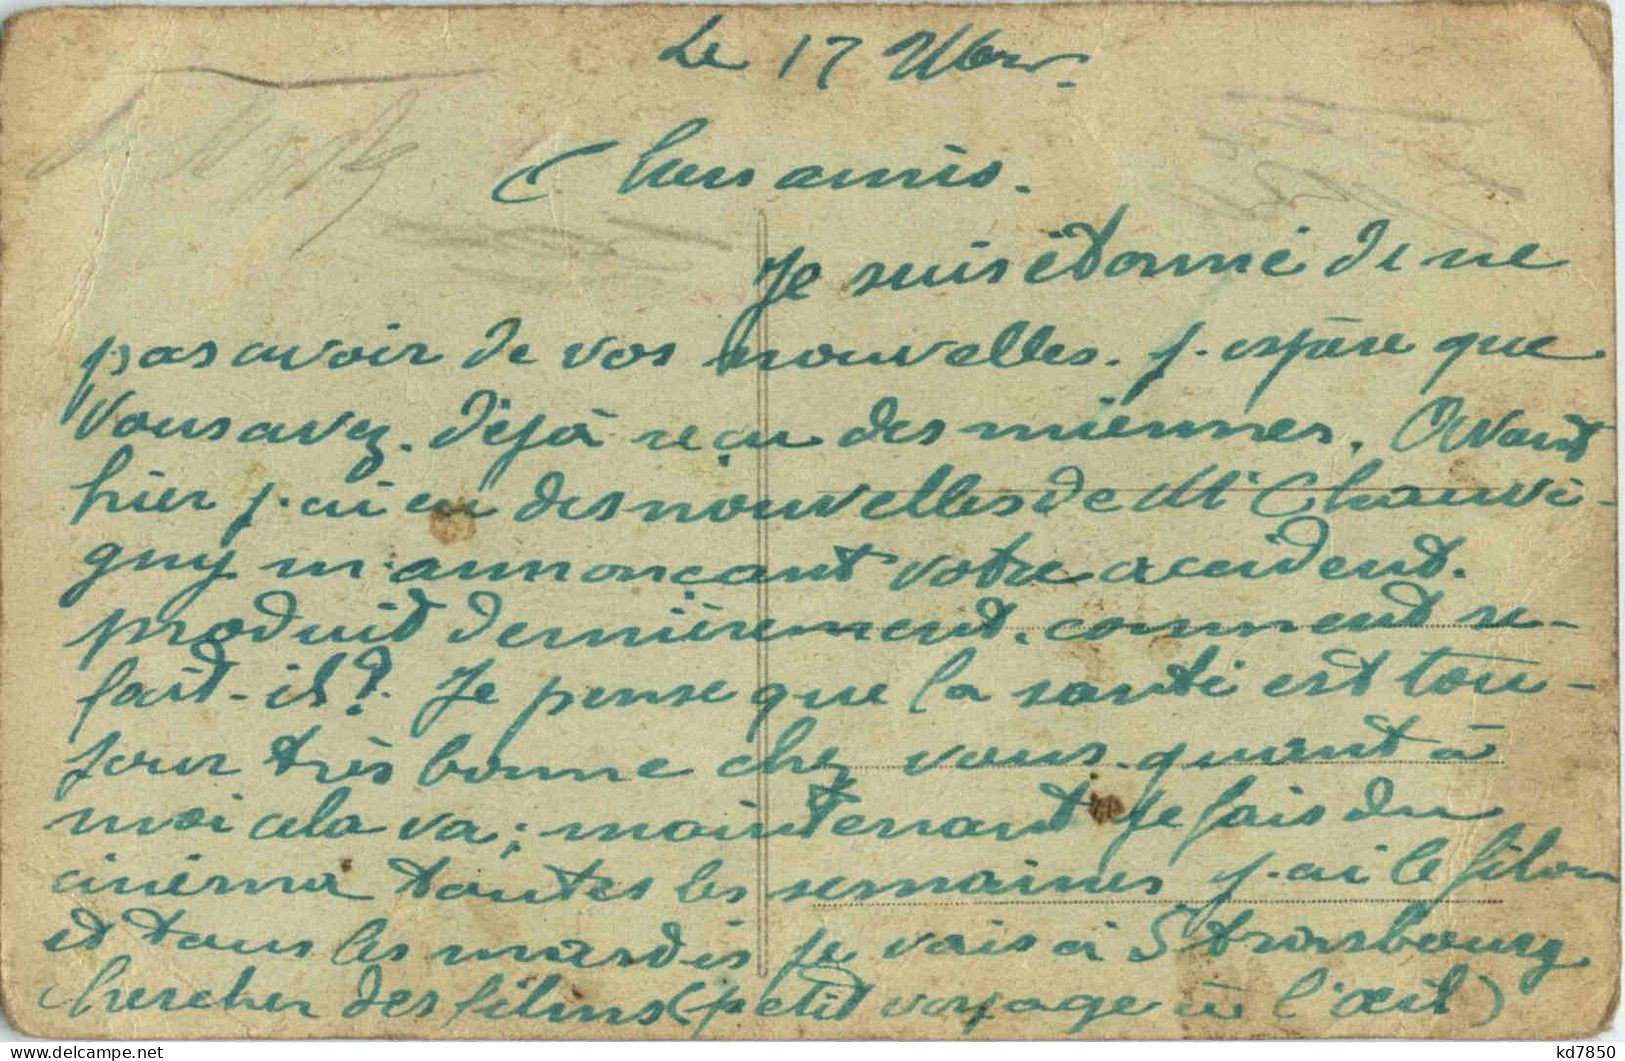 Le 17 9bre.
Chers amis.
Je suis étonné de ne
pas avoir de vos nouvelles. j.espère que
vous avez. déjà reçu des miennes. Avant
hier j.ai eu des nouvelles de Mr Chauvi-
guy m.annonçant votre accident.
produit dernièrement. comment se
fait-il? Je pense que la santé est tou-
jour très bonne chez vous. quant à
moi cela va; maintenant je fais du
cinéma toutes les semaines j.ai le filon
et tous les mardis je vais à Strasbourg
chercher des films (petit voyage à l'œil)
kd7850